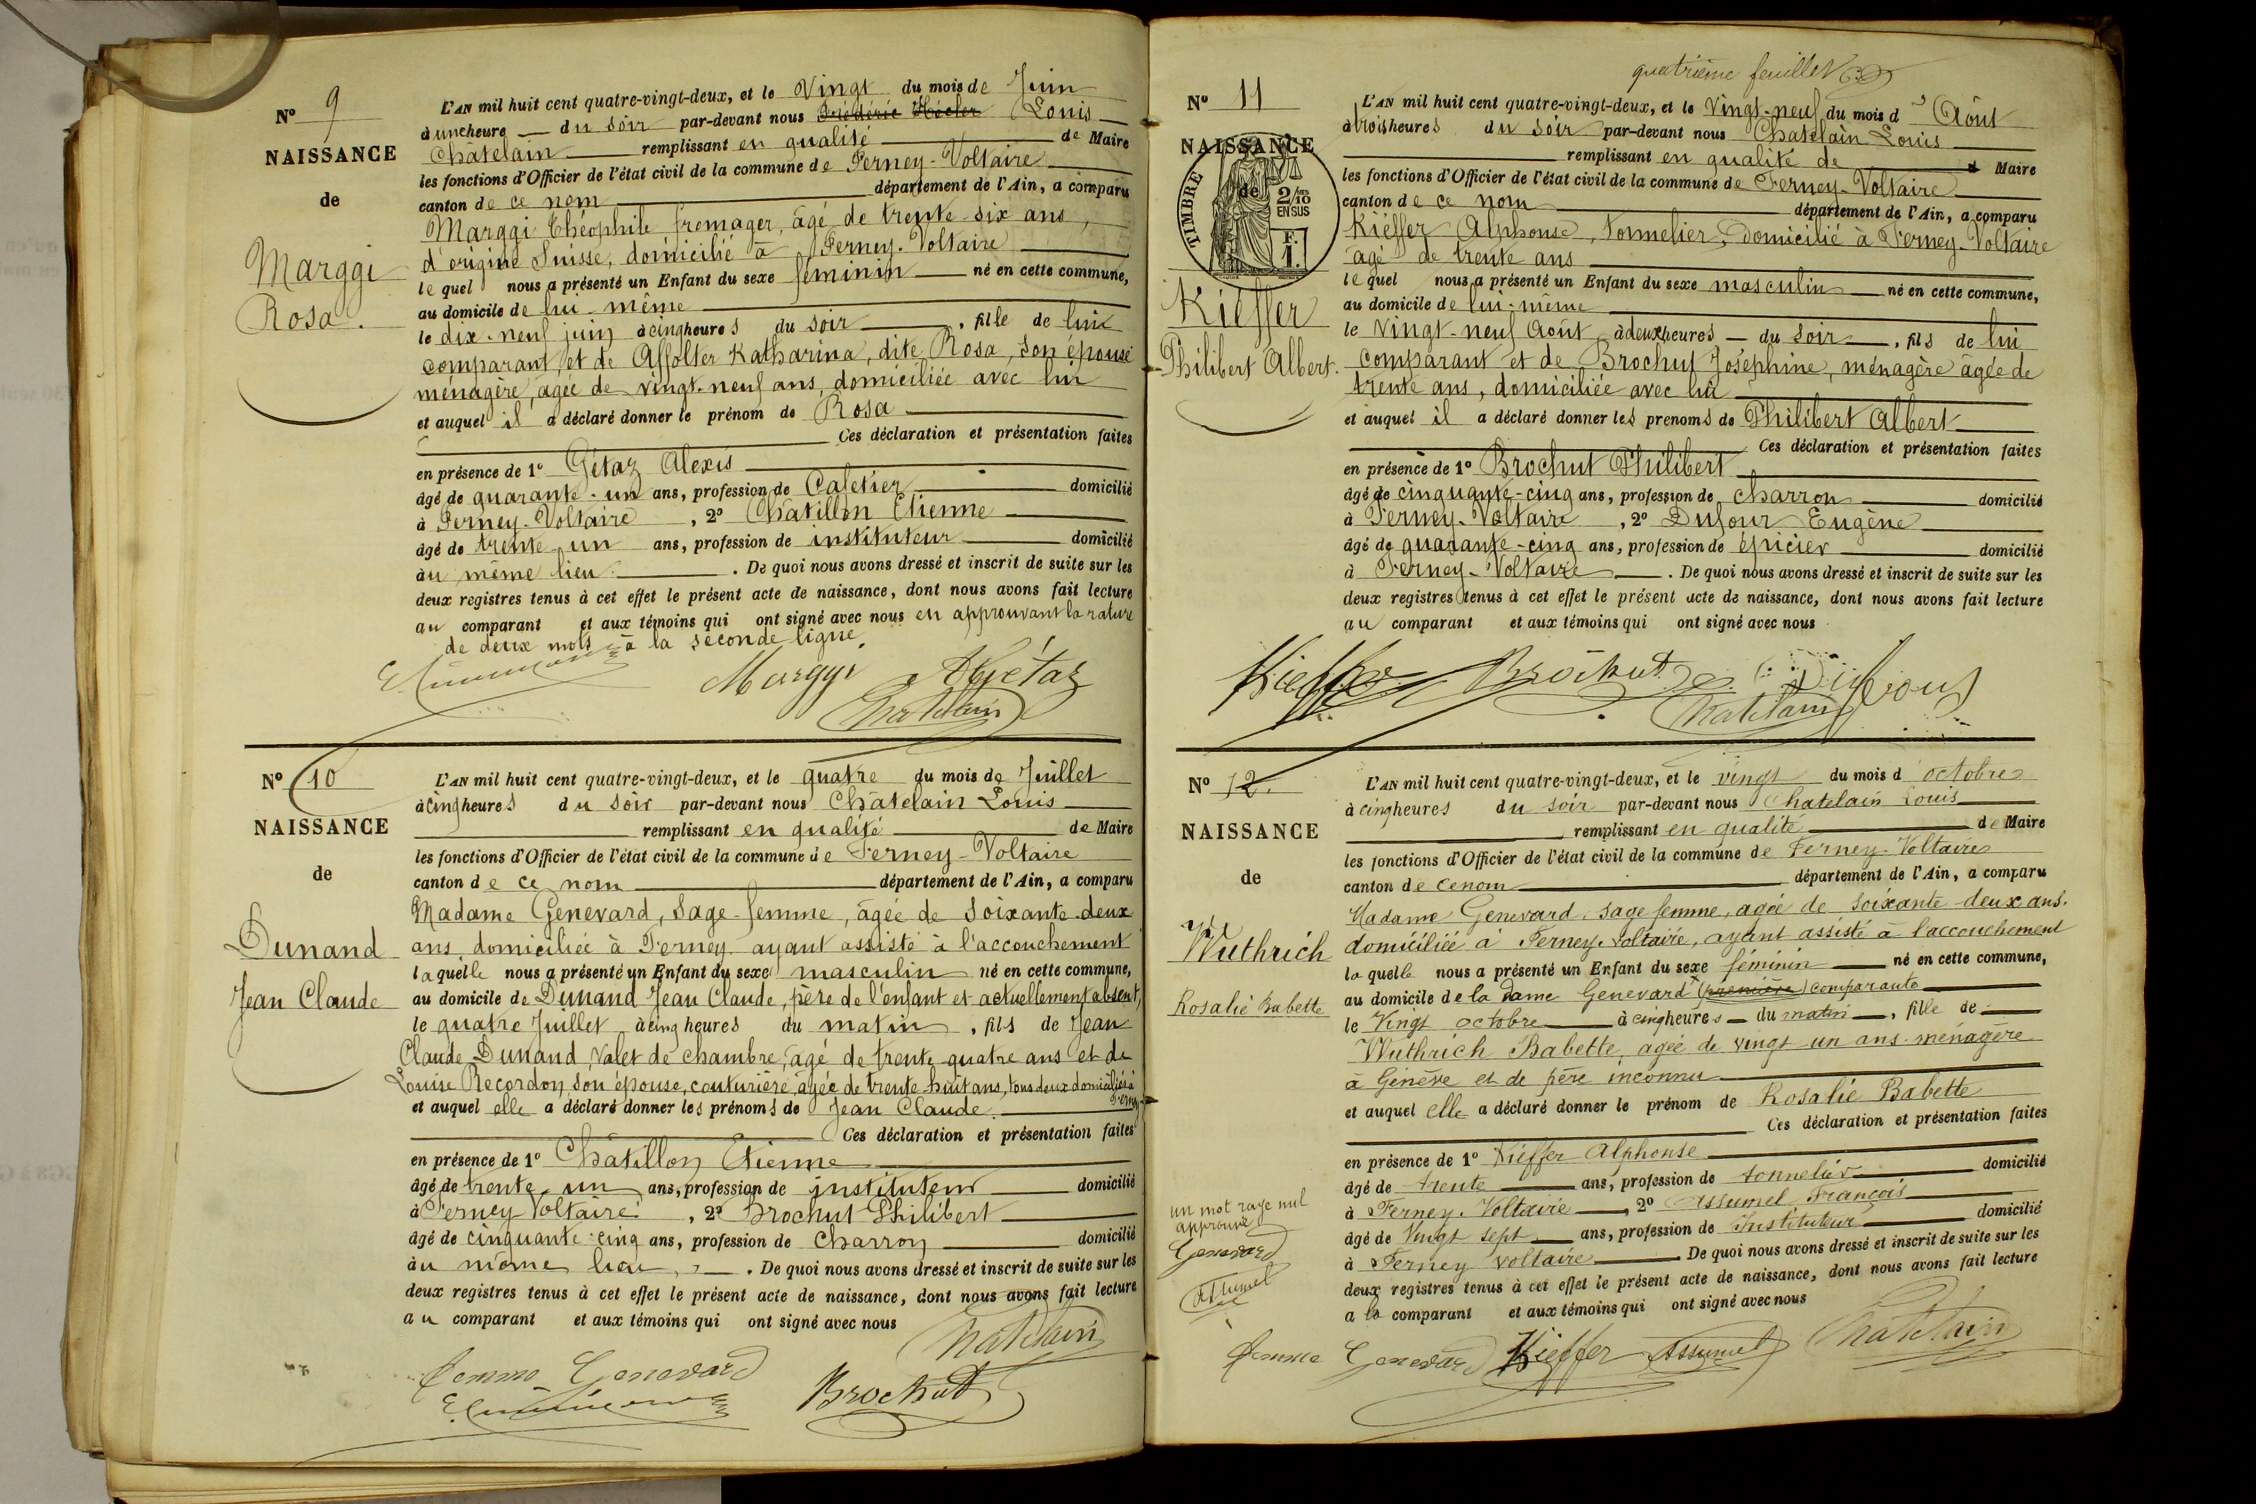 N° 9
NAISSANCE
de
Marggi
Rosa.
L'AN mil huit cent quatre-vingt-deux, et le Vingt du mois de Juin
à une heure du soir par-devant nous Louis
Châtelain remplissant en qualité de Maire
les fonctions d'Officier de l'état civil de la commune de Ferney-Voltaire
canton de ce nom département de l'Ain, a comparu
Marggi Théophile fromager, âgé de trente-six ans,
d'origine Suisse, domicilié à Ferney-Voltaire
lequel nous a présenté un Enfant du sexe féminin né en cette commune,
au domicile de lui-même
le dix-neuf juin à cinq heures du soir, fille de lui
comparant, et de Affolter Katharina, dite Rosa, son épouse
ménagère, âgée de vingt-neuf ans, domiciliée avec lui
et auquel il a déclaré donner le prénom de Rosa
Ces déclaration et présentation faites
en présence de 1° Gétaz Alexis
âgé de quarante-un ans, profession de Cafetier domicilié
à Ferney-Voltaire, 2° Chatillon Etienne
âgé de trente un ans, profession de instituteur domicilié
au même lieu. De quoi nous avons dressé et inscrit de suite sur les
deux registres tenus à cet effet le présent acte de naissance, dont nous avons fait lecture
au comparant et aux témoins qui ont signé avec nous en approuvant la rature
de deux mots à la seconde ligne.
Marggi AGétaz
Chatelain
N° 10
NAISSANCE
de
Dunand
Jean Claude
L'AN mil huit cent quatre-vingt-deux, et le quatre du mois de Juillet
à cinq heures du soir par-devant nous Châtelain Louis
remplissant en qualité de Maire
les fonctions d'Officier de l'état civil de la commune de Ferney-Voltaire
canton de ce nom département de l'Ain, a comparu
Madame Genevard, Sage-femme, âgée de soixante-deux
ans, domiciliée à Ferney ayant assisté à l'accouchement
laquelle nous a présenté un Enfant du sexe masculin né en cette commune,
au domicile de Dunand Jean Claude, père de l'enfant et actuellement absent,
le quatre Juillet à cinq heures du matin, fils de Jean
Claude Dunand, Valet de chambre, âgé de trente-quatre ans et de
Louise Recordon, son épouse, couturière, âgée de trente huit ans, tous deux domiciliés à
Ferney
et auquel elle a déclaré donner les prénoms de Jean Claude.
Ces déclaration et présentation faites
en présence de 1° Châtillon Etienne
âgé de trente un ans, profession de instituteur domicilié
à Ferney Voltaire, 2° Brochut Philibert
âgé de cinquante-cinq ans, profession de charron domicilié
au même lieu. De quoi nous avons dressé et inscrit de suite sur les
deux registres tenus à cet effet le présent acte de naissance, dont nous avons fait lecture
au comparant et aux témoins qui ont signé avec nous
Chatelain
femme Genevard
Brochut
quatrième feuillet
N° 11
NAISSANCE
de
TIMBRE
2/10
EN SUS
F.
1.
Kieffer
Philibert Albert.
L'AN mil huit cent quatre-vingt-deux, et le Vingt-neuf du mois d'Août
à trois heures du soir par-devant nous Chatelain Louis
remplissant en qualité de Maire
les fonctions d'Officier de l'état civil de la commune de Ferney-Voltaire
canton de ce nom département de l'Ain, a comparu
Kieffer Alphonse, Tonnelier, domicilié à Ferney-Voltaire
âgé de trente ans
lequel nous a présenté un Enfant du sexe masculin né en cette commune,
au domicile de lui-même
le Vingt-neuf Août à deux heures du soir, fils de lui
comparant et de Brochut Joséphine, ménagère âgée de
trente ans, domiciliée avec lui
et auquel il a déclaré donner les prenoms de Philibert Albert
Ces déclaration et présentation faites
en présence de 1° Brochut Philibert
âgé de cinquante-cinq ans, profession de charron domicilié
à Ferney-Voltaire, 2° Dufour Eugène
âgé de quarante-cinq ans, profession de épicier domicilié
à Ferney-Voltaire. De quoi nous avons dressé et inscrit de suite sur les
deux registres tenus à cet effet le présent acte de naissance, dont nous avons fait lecture
au comparant et aux témoins qui ont signé avec nous
Kieffer Brochut Dufour
Chatelain
N° 12.
NAISSANCE
de
Wuthrich
Rosalie Babette
L'AN mil huit cent quatre-vingt-deux, et le vingt du mois d octobre
à cinq heures du soir par-devant nous Chatelain Louis
remplissant en qualité de Maire
les fonctions d'Officier de l'état civil de la commune de Ferney-Voltaire
canton de ce nom département de l'Ain, a comparu
Madame Genevard, sage femme, agée de soixante-deux ans.
domiciliée à Ferney-Voltaire, ayant assisté à l'accouchement
laquelle nous a présenté un Enfant du sexe féminin né en cette commune,
au domicile de la Dame Genevard (première) comparante
le Vingt octobre à cinq heures du matin, fille de
Wuthrich Babette, agée de vingt un ans ménagère
à Genève et de père inconnu
et auquel elle a déclaré donner le prénom de Rosalie Babette
Ces déclaration et présentation faites
en présence de 1° Kieffer Alphonse
âgé de trente ans, profession de tonnelier domicilié
à Ferney-Voltaire, 2° Assumel François
âgé de Vingt sept ans, profession de Instituteur domicilié
à Ferney voltaire De quoi nous avons dressé et inscrit de suite sur les
deux registres tenus à cet effet le présent acte de naissance, dont nous avons fait lecture
a la comparant et aux témoins qui ont signé avec nous
un mot rayé nul
approuvé
Genevard
Assumel
femme Genevard Kieffer Assumel Chatelain